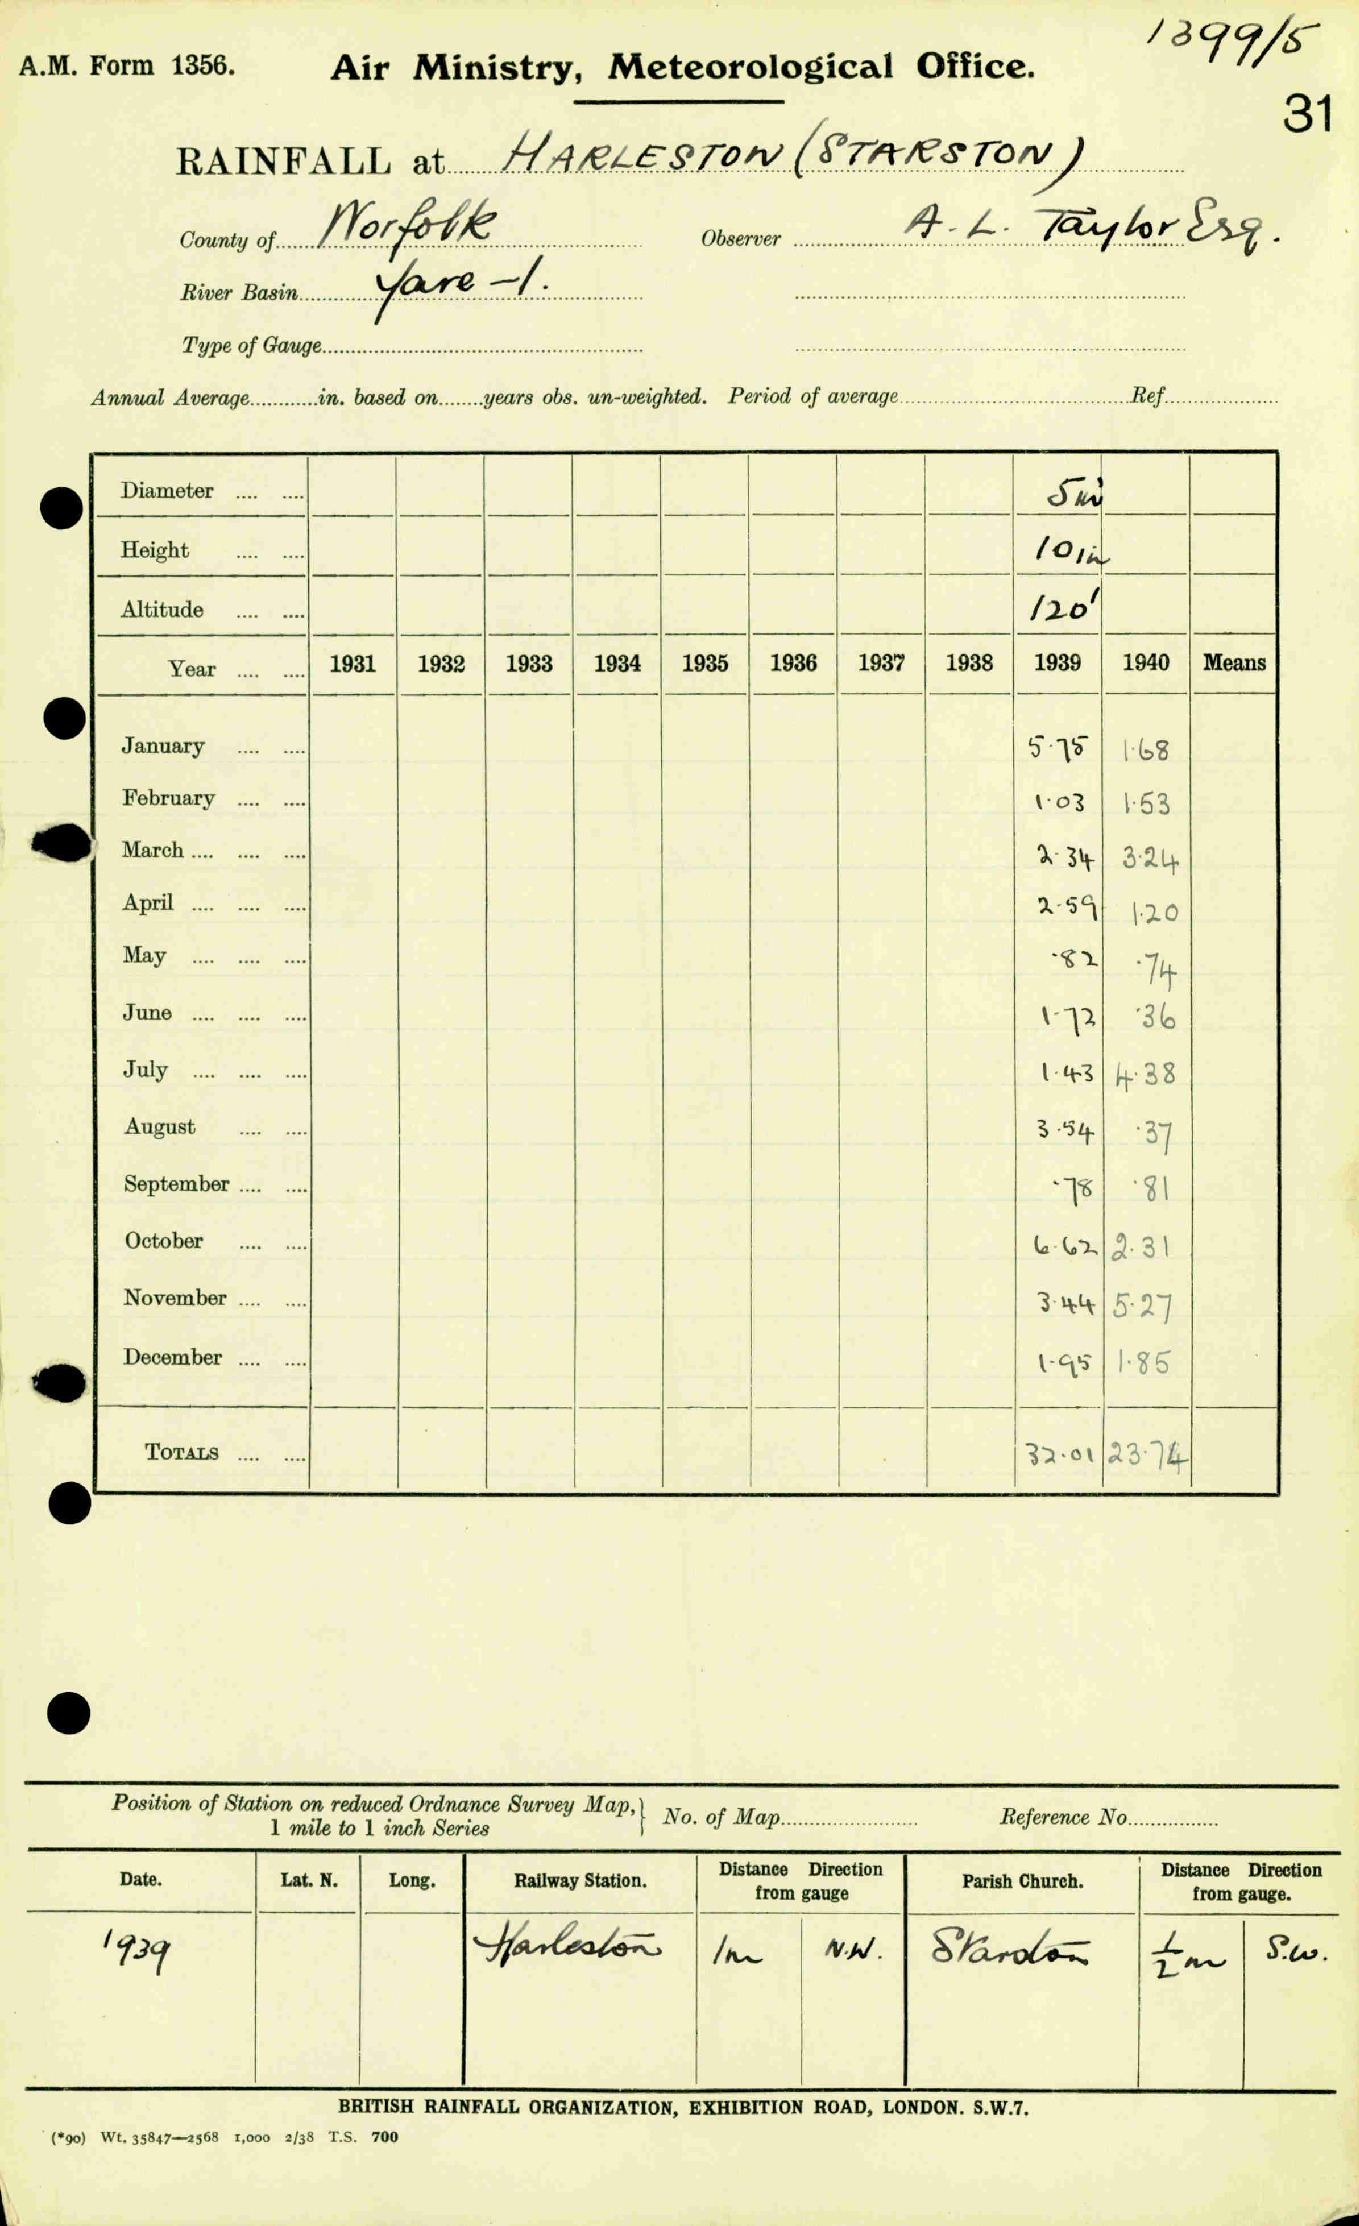 1399/5
A.M. Form 1356. Air Ministry, Meteorological Office.
31
RAINFALL at HARLESTON (STARSTON)
County of Norfolk Observer A. L. Taylor Esq.
River Basin Yare - 1.
Type of Gauge
Annual Average in. based on years obs. un-weighted. Period of average Ref.
Diameter 5 in
Height 10 in
Altitude 120'
Year 1931 1932 1933 1934 1935 1936 1937 1938 1939 1940 Means
January 5.75 1.68
February 1.03 1.53
March 2.34 3.24
April 2.59 1.20
May .82 .74
June 1.72 .36
July 1.43 4.38
August 3.54 .37
September .78 .81
October 6.62 2.31
November 3.44 5.27
December 1.95 1.85
TOTALS 32.01 23.74
Position of Station on reduced Ordnance Survey Map, } No. of Map Reference No.
1 mile to 1 inch Series
Date. Lat. N. Long. Railway Station. Distance Direction from gauge Parish Church. Distance Direction from gauge.
1939 Harleston 1m N.W. 1/2 m S.W.
BRITISH RAINFALL ORGANIZATION, EXHIBITION ROAD, LONDON. S.W.7.
(*90) Wt. 35847—2568 1,000 2/38 T.S. 700